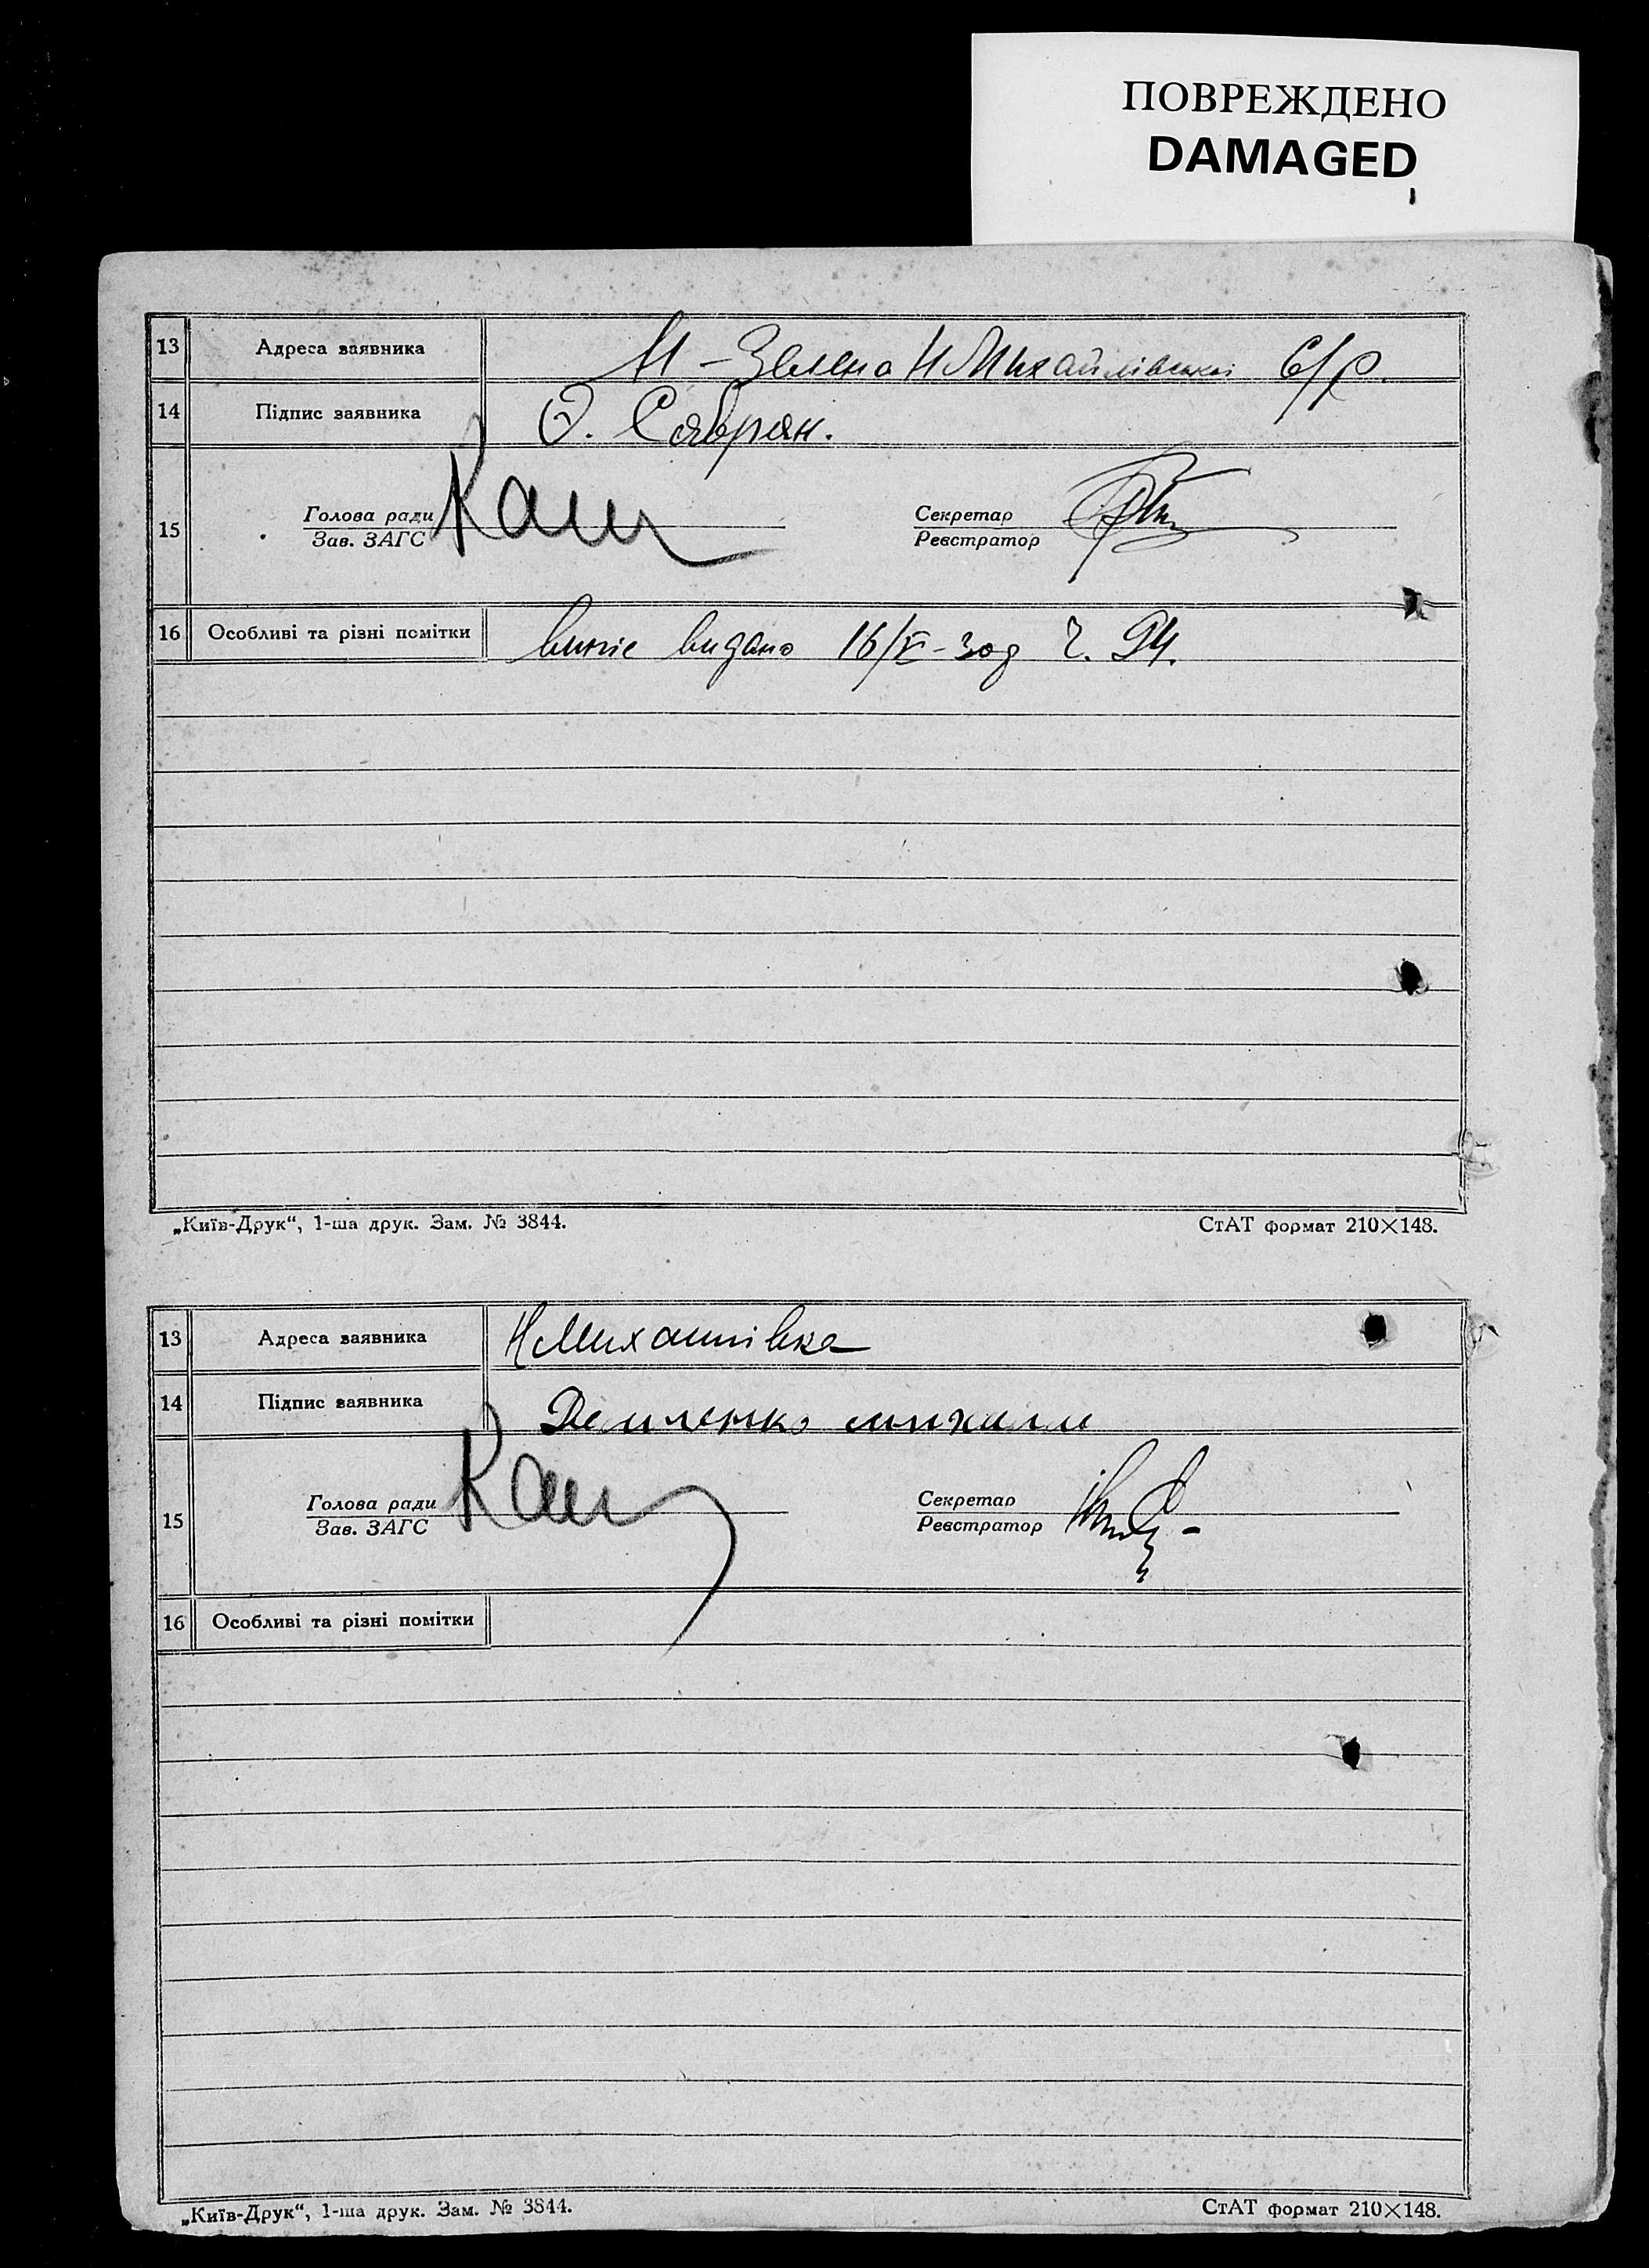 ПОВРЕЖДЕНО
DAMAGED
13 Адреса заявника М - Зелена НМихайлівської С/р.
14 Підпис заявника
15 Голова ради Секретар
Зав. ЗАГС Реєстратор
16 Особливі та різні помітки видано 16/VI-30д Ч. 94.
„Київ-Друк“, 1-ша друк. Зам. № 3844. СтАТ формат 210×148.
13 Адреса заявника НМихайлівка
14 Підпис заявника
15 Голова ради Секретар
Зав. ЗАГС Реєстратор
16 Особливі та різні помітки
„Київ-Друк“, 1-ша друк. Зам. № 3844. СтАТ формат 210×148.